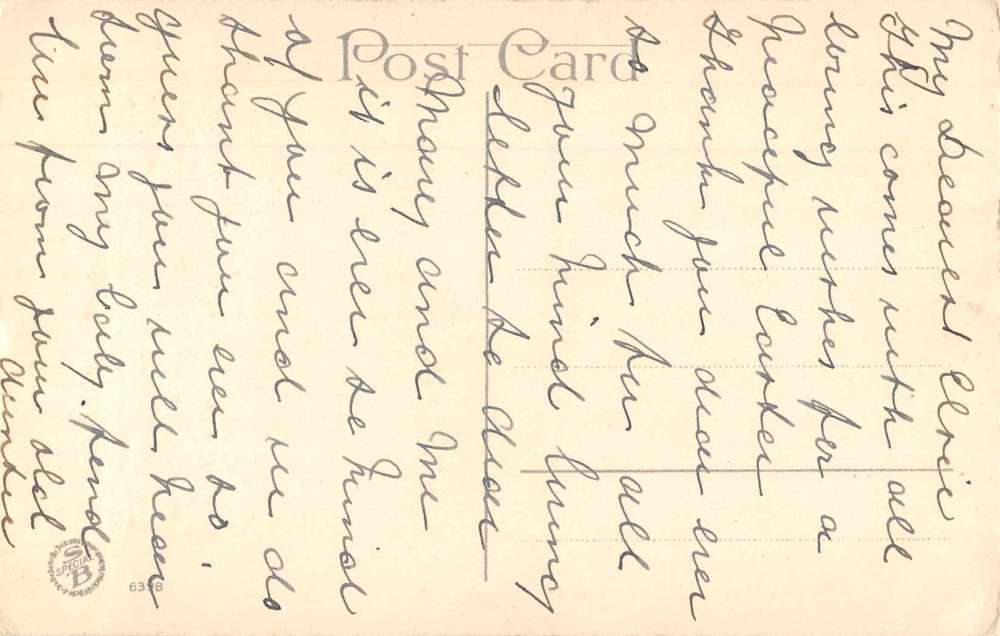 Post Card
My Dearest Elsie
This comes with all
loving wishes for a
Peaceful Easter
Thank you dear ever
so much for all
your kind loving
letter to dear
Mary and me
it is ever so kind
of you and we do
thank you ever so.
guess you will hear
from my baby. fond
love from your old
Auntie
S
SPECIAL
B
6398